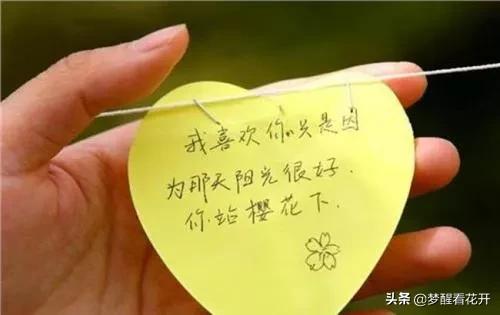 我喜欢你只是因
为那天阳光很好.
你站樱花下.
头条 @梦醒看花开